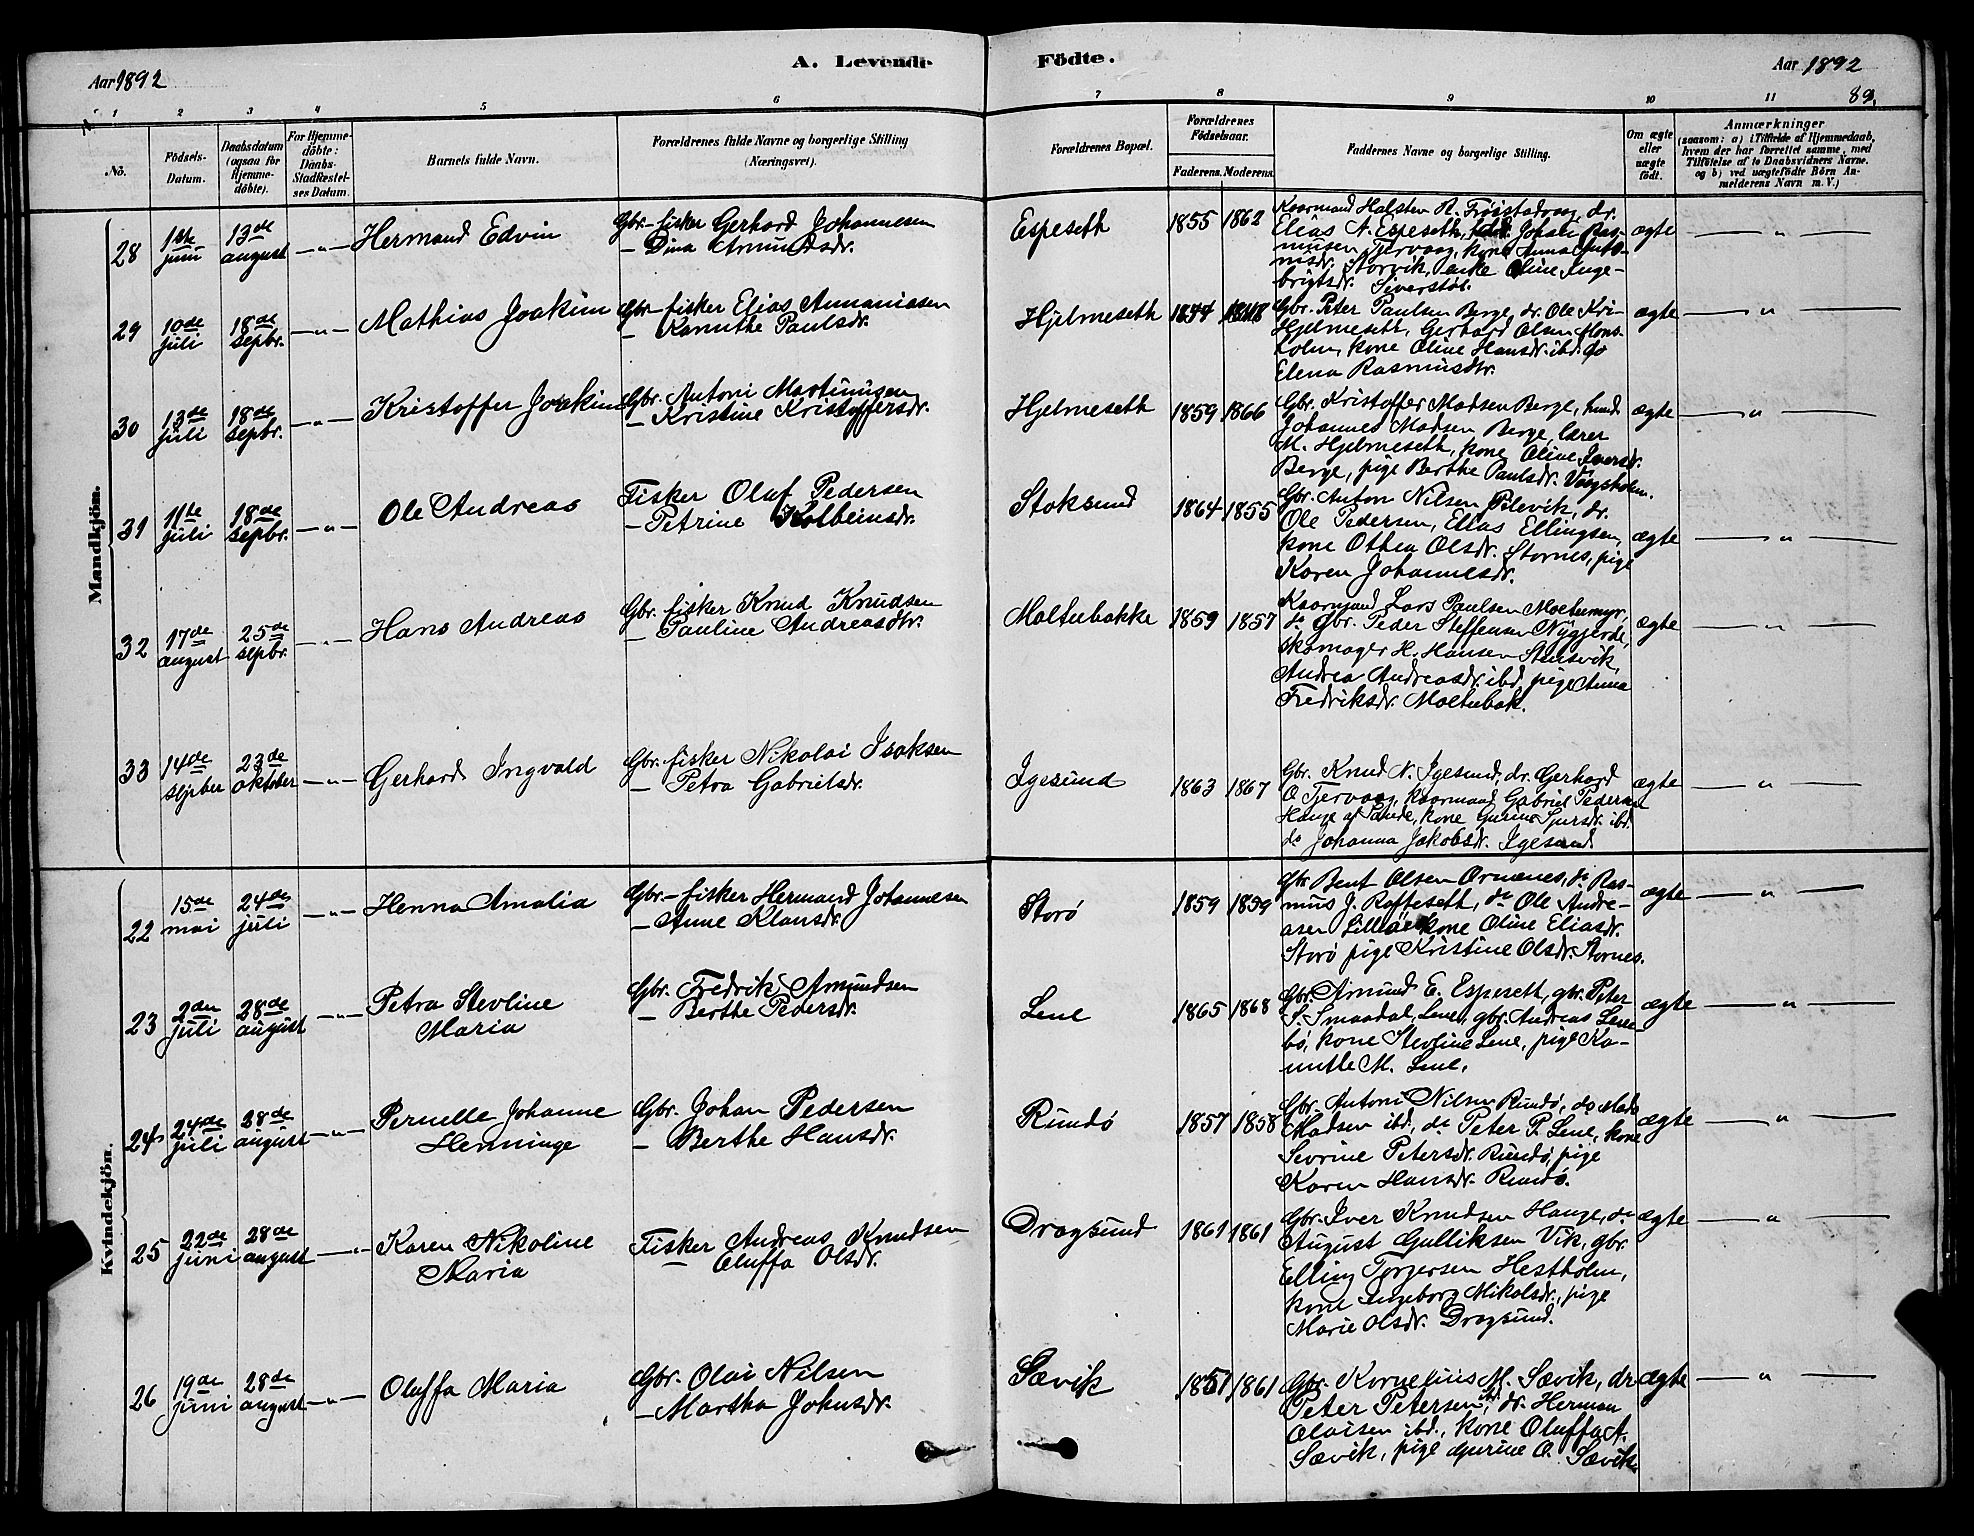 Aar 1892
A. Levende
Födte.
Aar 1892
89.
1 2 3 4 5 6 7 8 9 10 11
No.
Födsels-Datum.
Daabsdatum (ogsaa for Hjemme-döbte).
For Hjemme-döbte: Daabs-Stadfæstel-ses Datum.
Barnets fulde Navn.
Forældrenes fulde Navne og borgerlige Stilling (Næringsvei).
Forældrenes Bopæl.
Forældrenes Födselsaar.
Faderens. Moderens.
Faddernes Navne og borgerlige Stilling.
Om ægte eller uægte födt.
Anmærkninger
(saasom: a) i Tilfælde af Hjemmedaab,
hvem der har forrettet samme, med
Tilföielse af to Daabsvidners Navne.
og b) ved uægtefödte Börn An-
melderens Navn m. V.)
Mandkjön.
28 1ste juni 13de august -"- Hermand Edvin
Gbr.-fisker Gerhard Johannesen
- Dina Amundsdr.
Espeseth 1855 1862
Kaarmand Halsten R. Frøistadvaag, dr.
Elias N. Espeseth, Johan Ras-
musen Tjervaag, kone Anna Anto-
nisdr. Storvik, enke Oline Inge-
brigtsdr. Siverstøl.
ægte "
29 10de juli 18de sepbr. -"- Mathias Joakim
Gbr.-fisker Elias Annaniasen
- Kanuthe Paulsdr.
Hjelmeseth 1844 1848
Gbr. Peter Paulsen Berge, dr. Ole Kri-
Hjelmeseth, Gerhard Olsen Mons-
holm, kone Oline Hansdr. ibd. do
Elena Rasmusdtr.
ægte "
30 13de juli 18de sepbr. -"- Kristoffer Joakim
Gbr. Antoni Martinusen
- Kristine Kristoffersdr.
Hjelmeseth 1859 1866
Gbr. Kristoffer Madsen Berge,
Johannes Madsen Berge, lærer
M. Hjelmeseth, kone Oline Iversdr.
Berge, pige Berthe Paulsdr. Vaagsholm.
ægte "
31 11te juli 18de sepbr. -"- Ole Andreas
Fisker Oluf Pedersen
- Petrine Kolbeinsdr.
Stoksund 1864 1855
Gbr. Anton Nilsen Pilevik, dr.
Ole Pedersen, Elias Ellingsen,
kone Othea Olsdr. Stornes, pige
Karen Johannesdr.
ægte "
32 17de august 25de sepbr. -"- Hans Andreas
Gbr. fisker Knud Knudsen
- Pauline Andreasdtr.
Moltubakke 1859 1857
Kaarmand Lars Paulsen Moltumyr,
do gbr. Peder Steffensen Nygjerde,
skomager H. Hansen Stensvik,
Andrea Andreasdr. ibd. pige Anna
Fredriksdr. Moltubak.
ægte "
33 14de sepber 23de oktober -"- Gerhard Ingvald
Gbr. fisker Nikolai Isaksen
- Petra Gabrielsdr.
Igesund 1863 1867
Gbr. Knud N. Igesund, dr. Gerhard
O. Tjervaag, kaarmand Gabriel Pedersen
Hauge af Sande, kone Gurine Sjursdr. ibd.
do Johanna Jakobsdr. Igesund
ægte "
Kvindekjön.
22 15de mai 24de juli -"- Henna Amalia
Gbr.-fisker Hermand Johannesen
- Anne Klausdr.
Storø 1859 1859
Gbr Bent Olsen Ornenes, do Ras-
mus J. Rafteseth, do Ole Andre-
asen Lilleø kone Oline Eliasdr.
Storø pige Kristine Olsdr. Stornes.
ægte "
23 2den juli 28de august -"- Petra Stevline
Maria
Gbr. Fredrik Amundsen
- Berthe Pedersdr.
Lene 1865 1868
Gbr. Amund E. Espeseth, gbr. Peter
S. Smaadal, Lene, gbr. Andreas Lene-
bø, kone Stevline Lene, pige Ka-
nutte M. Lene.
ægte "
24 24de juli 28de august -"- Pernelle Johanne
Henninge
Gbr. Johan Pedersen
- Berthe Hansdr.
Rundø 1857 1858
Gbr. Antoni Nilsen Rundø, do Mads
Madsen ibd, do Peter P. Lene, kone
Sevrine Petersdr. Rundø, pige
Karen Hansdr. Rundø.
ægte "
25 22de juni 28de august -"- Karen Nikoline
Maria
Fisker Andreas Knudsen
- Oluffa Olsdr.
Dragsund 1861 1861
Gbr. Iver Knudsen Hauge, do
August Gulliksen Vik, gbr.
Elling Torgersen Hestholm,
kone Ingeborg Nikolsdr., pige
Marie Olsdr. Dragsund.
ægte "
26 19de juni 28de august -"- Oluffa Maria
Gbr. Olai Nilsen
- Martha Johnsdr.
Sævik 1851 1861
Gbr. Kornelius M. Sævik, dr
Peter Petersen ibd, dr. Herman
Olaisen ibd., kone Oluffa A.
Sævik, pige Gurine O. Sævik.
ægte "